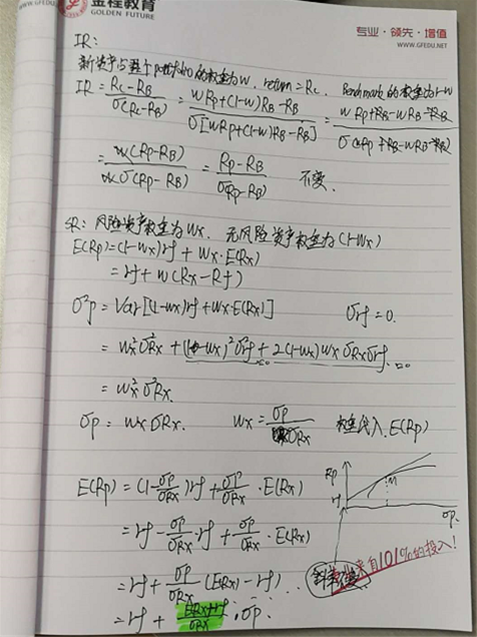 金程教育
GOLDEN FUTURE
专业·领先·增值
WWW.GFEDU.NET
IR:
新资产占整个portfolio的权重为w, return = Rc. Benchmark的权重为1-w
IR = (Rc-RB)/σ(Rc-RB) = (wRp+(1-w)RB-RB)/σ[wRp+(1-w)RB-RB] = (wRp+RB-wRB-RB)/σ(wRp+RB-wRB-RB)
= w(Rp-RB)/wσ(Rp-RB) = (Rp-RB)/σ(Rp-RB) 不变.
SR: 风险资产权重为Wx. 无风险资产权重为(1-Wx)
E(Rp)=(1-Wx)rf + Wx·E(Rx)
= rf + w(Rx-Rf)
σ²p = Var[(1-wx)rf+wx·E(Rx)] σrf = 0.
= wx²σ²Rx + (1-wx)²σ²rf + 2(1-wx)wxσRxσrf =0 =0
= wx²σ²Rx.
σp = wxσRx. wx = σp/σRx 权重代入E(Rp)
E(Rp) = (1-σp/σRx)rf + σp/σRx·E(Rx)
= rf - σp/σRx·rf + σp/σRx·E(Rx)
Rp
rf
M
σp.
= rf + σp/σRx(E(Rx)-rf)
斜率
来自101%的投入!
= rf + (ERx-rf)/σRx·σp.